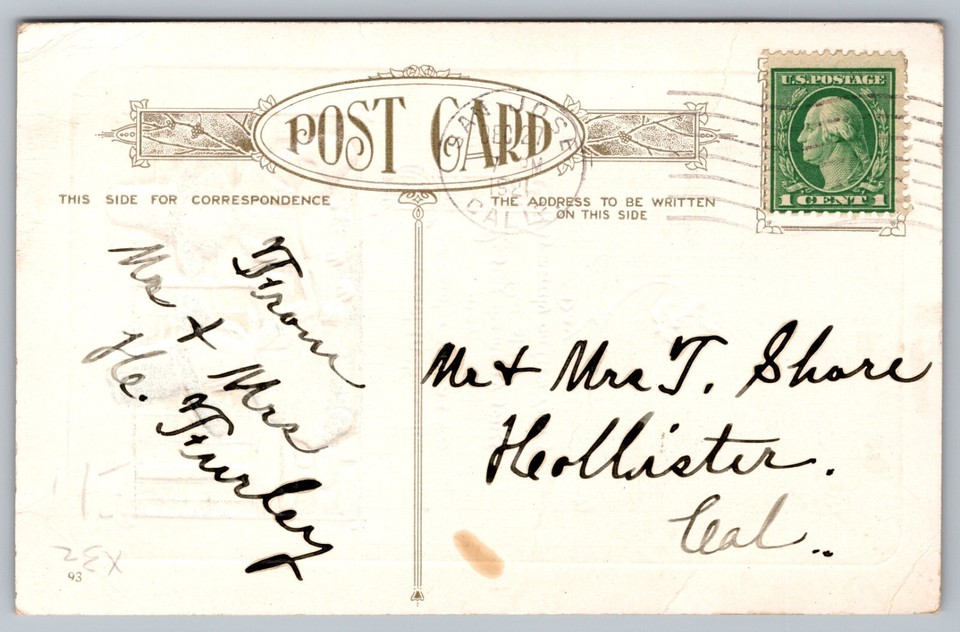 POST CARD
THIS SIDE FOR CORRESPONDENCE
THE ADDRESS TO BE WRITTEN
ON THIS SIDE
U.S. POSTAGE
1 CENT 1
SAN JOSE
DEC 27
1921
CALIF.
From
Mr + Mrs
He. Furley
Mr + Mrs T. Shore
Hollister.
Cal..
93